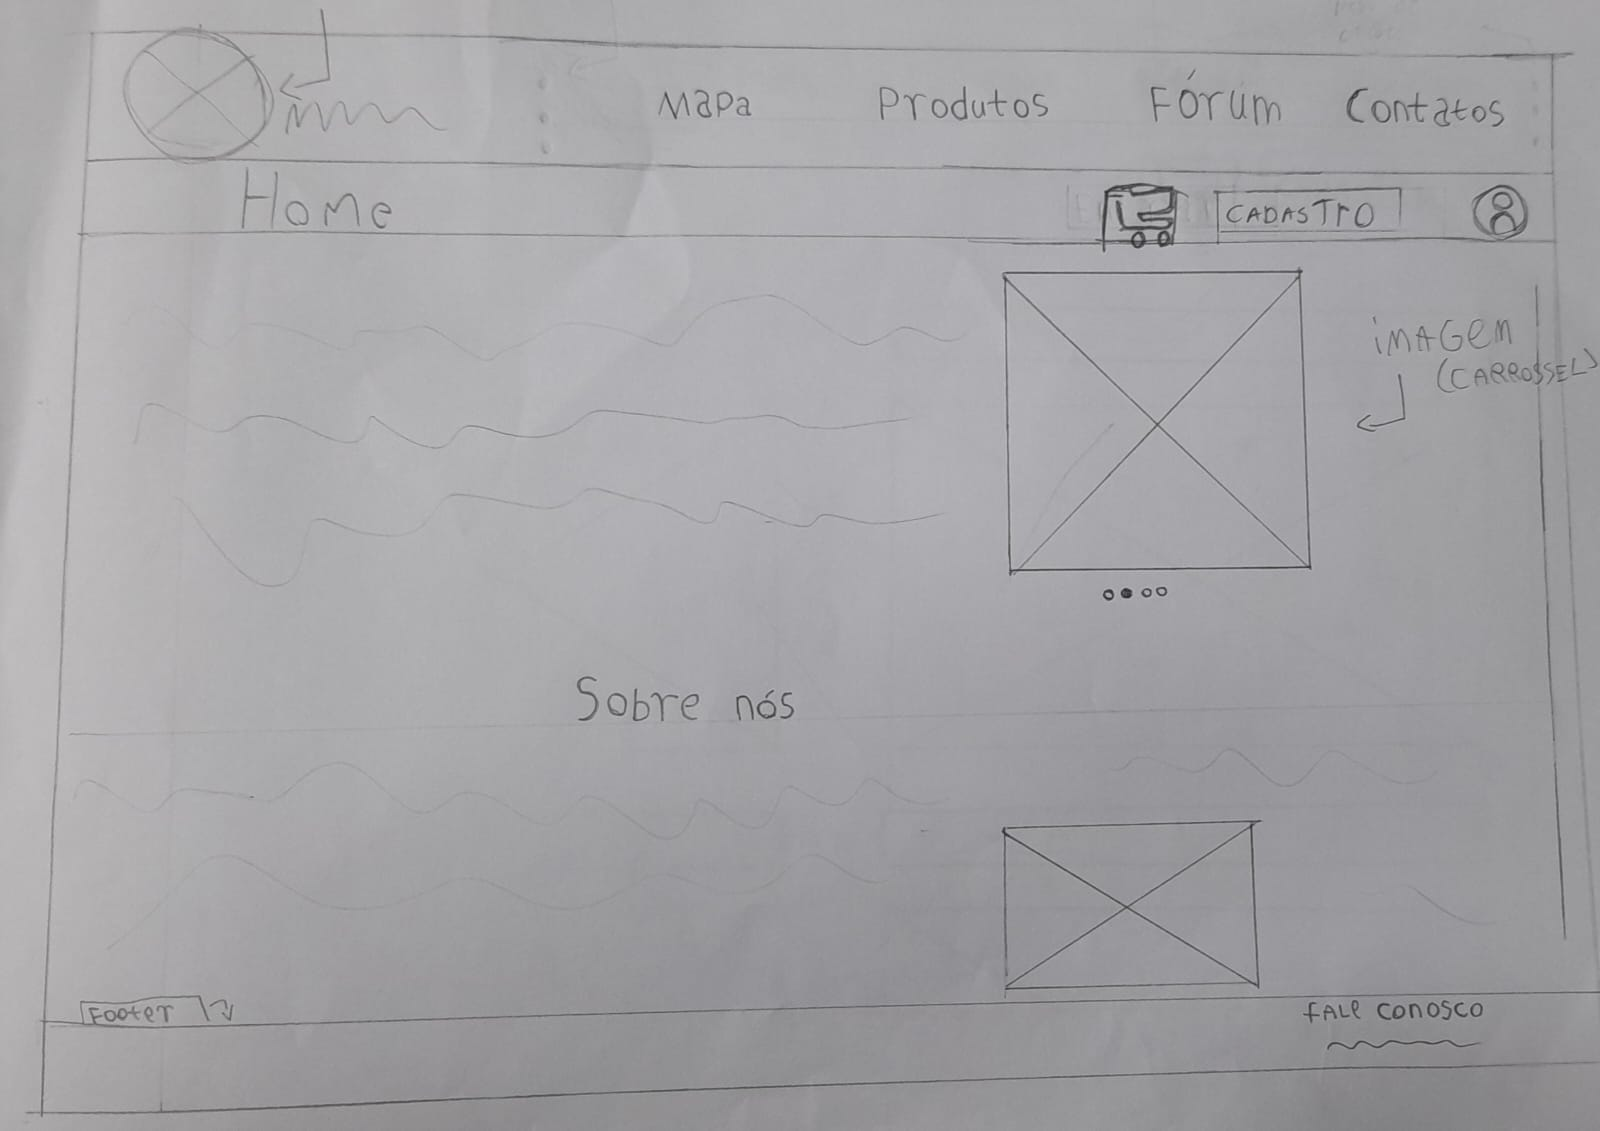 Mapa Produtos Fórum Contatos
Home CADASTrO
imAGem
(CARROSSEL)
Sobre nós
Footer
fALe conosco